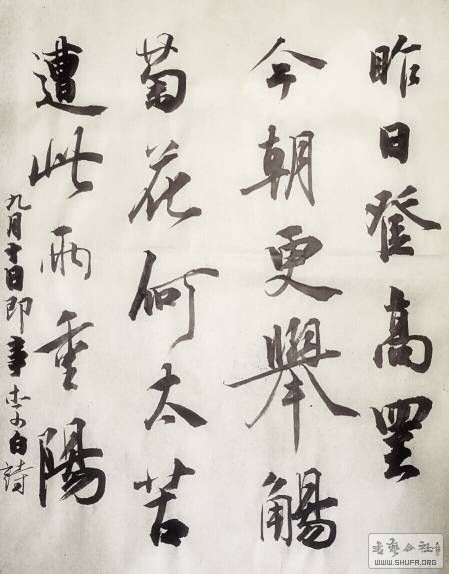 昨日登高罢
今朝更舉觴
菊花何太苦
遭此兩重陽
九月十日即事 李白詩
WWW.SHUFA.ORG